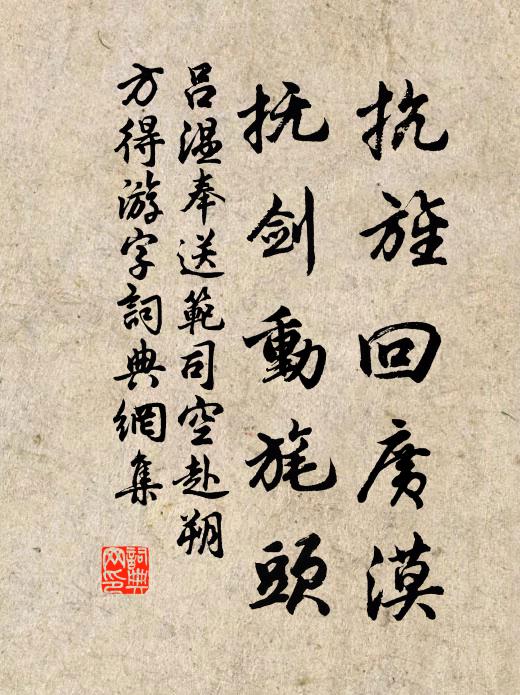 抗旌回广漠
抚剑動旄頭
吕温奉送範司空赴朔
方得游字詞典網集
詞典
网印